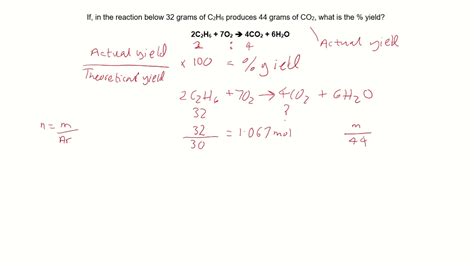 If, in the reaction below 32 grams of C₂H₆ produces 44 grams of CO₂, what is the % yield?
2C₂H₆ + 7O₂ → 4CO₂ + 6H₂O
Actual yield
2 : 4
Actual yield
Theoretical yield
× 100 = % yield
2C₂H₆ + 7O₂ → 4CO₂ + 6H₂O
32 ?
n = m/Ar
32/30 = 1.067 mol
m/44